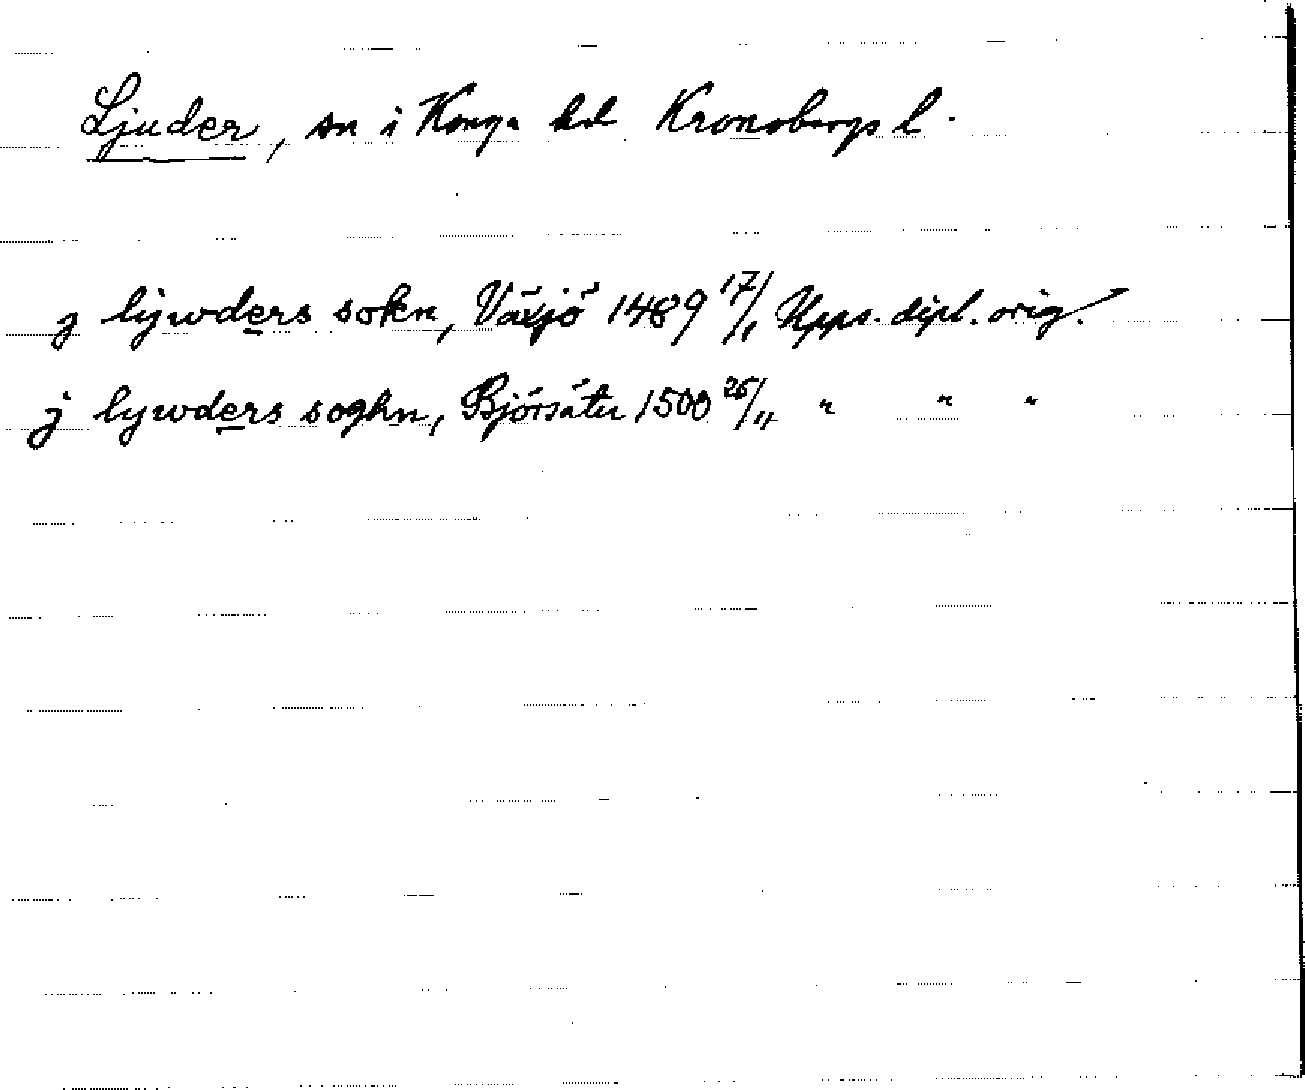 Ljuder, sn i Konga hd Kronobergs l.
j lijwders sokn, Växjö 1489 17/1 Upps. dipl. orig.
j lywders soghn, Björsäter 1500 26/11 " " "